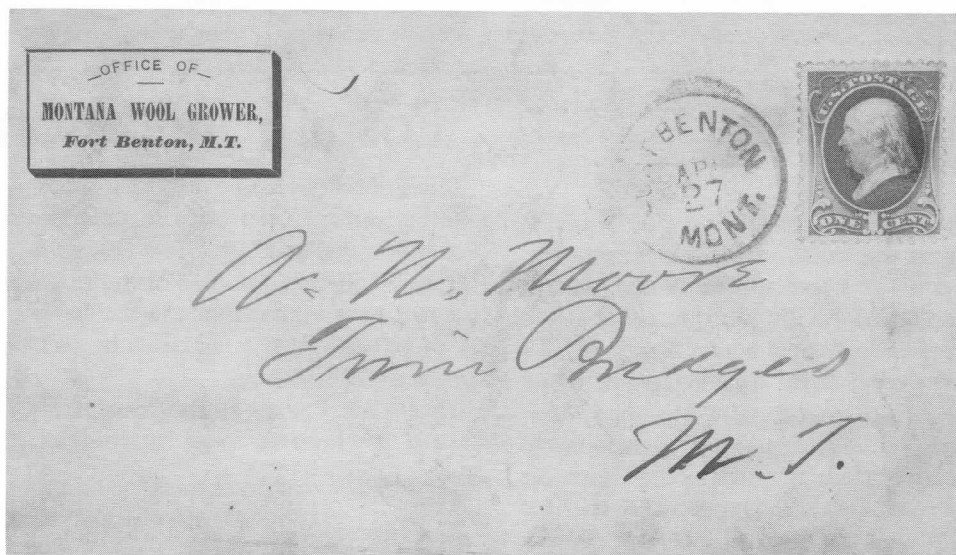 OFFICE OF
MONTANA WOOL GROWER,
Fort Benton, M.T.
BENTON
27
MONT.
U.S. POSTAGE
A. N. Moore
Twin Bridges
M.T.